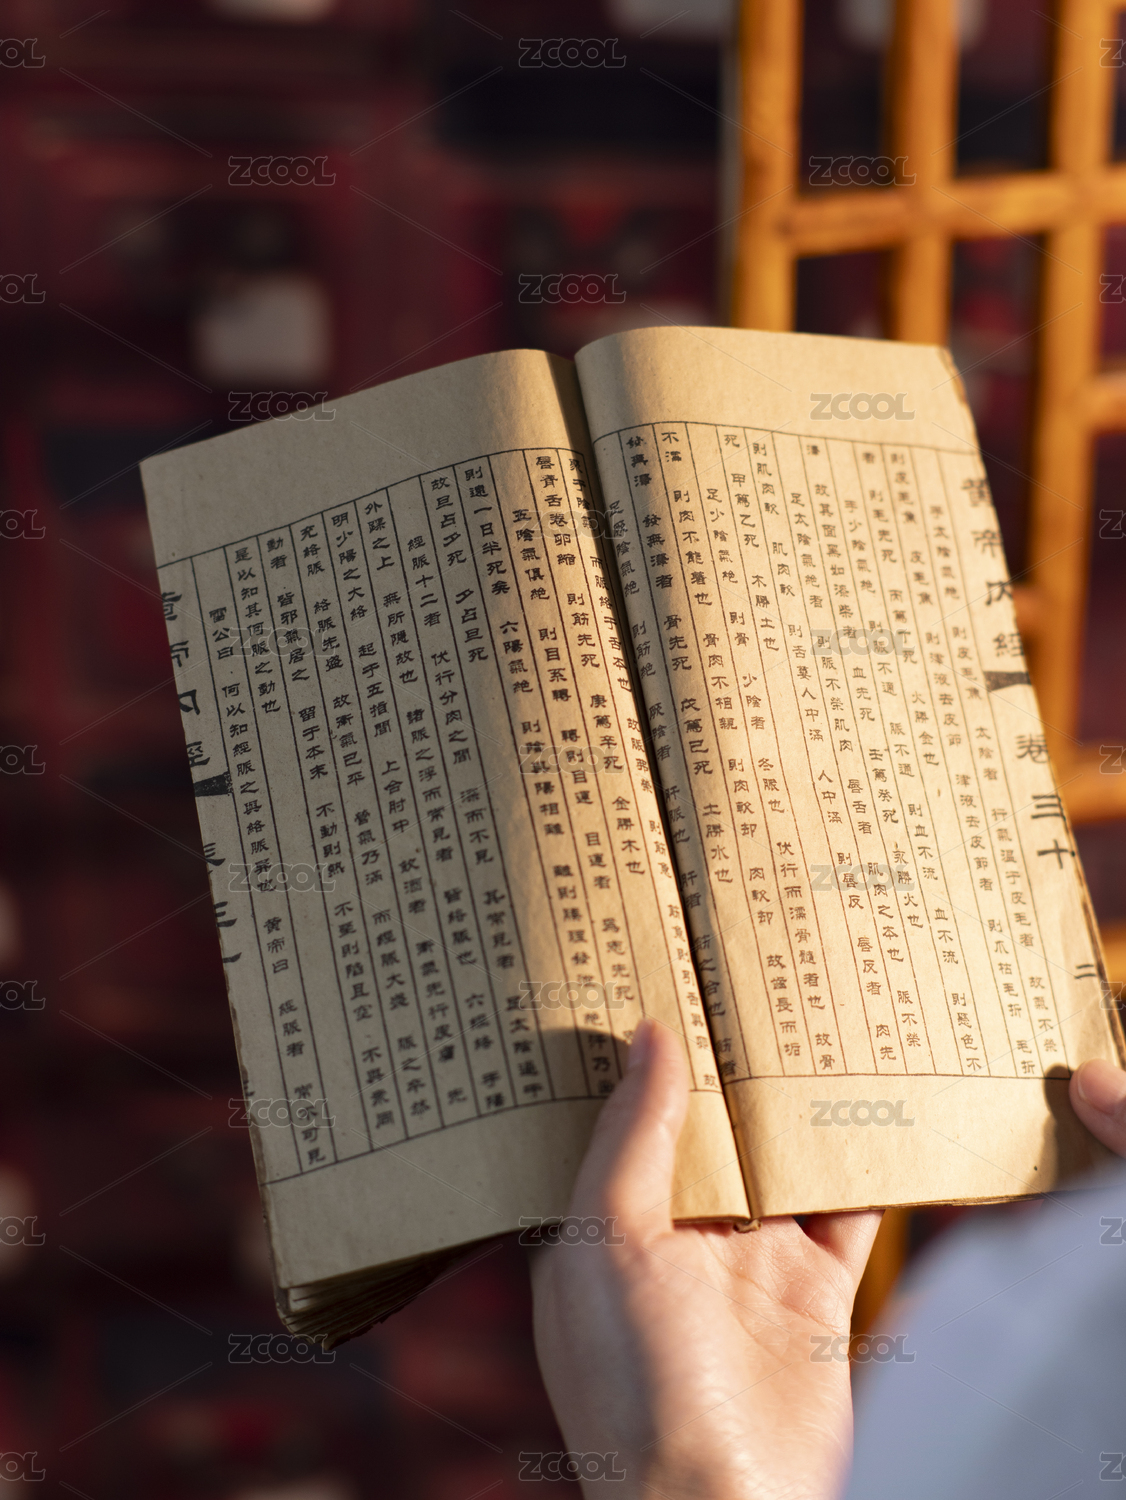 黃帝內經 卷三十 二
手太陰氣絕 則皮毛焦 太陰者 行氣溫于皮毛者 故氣不榮
則皮毛焦 皮毛焦 則津液去皮節 津液去皮節者 則爪枯毛折 毛折
者 則毛先死 丙篤丁死 火勝金也
手少陰氣絕 則脈不通 脈不通 則血不流 血不流 則髮色不
澤 故其面黑如漆柴者 血先死 壬篤癸死 水勝火也
足太陰氣絕者 則脈不榮肌肉 唇舌者 肌肉之本也 脈不榮
則肌肉軟 肌肉軟 則舌萎人中滿 人中滿 則唇反 唇反者 肉先
死 甲篤乙死 木勝土也
足少陰氣絕 則骨 少陰者 冬脈也 伏行而濡骨髓者也 故骨
不濡 則肉不能著也 骨肉不相親 則肉軟却 肉軟却 故齒長而垢
髮無澤 髮無澤者 骨先死 戊篤己死 土勝水也
足厥陰氣絕 則筋絕 厥陰者 肝脈也 肝者 筋之合也 筋者
聚于陰器 而脈絡于舌本也 故脈弗榮 則筋急 筋急則引舌與卵 故
唇青舌卷卵縮 則筋先死 庚篤辛死 金勝木也
五陰氣俱絕 則目系轉 轉則目運 目運者 為志先死
則遠一日半死矣 六陽氣絕 則陰與陽相離 離則腠理發泄 絕汗乃出
故旦占夕死 夕占旦死
經脈十二者 伏行分肉之間 深而不見 其常見者 足太陰過于
外踝之上 無所隱故也 諸脈之浮而常見者 皆絡脈也 六經絡 手陽
明少陽之大絡 起于五指間 上合肘中 飲酒者 衛氣先行皮膚 先
充絡脈 絡脈先盛 故衛氣已平 營氣乃滿 而經脈大盛 脈之卒然
動者 皆邪氣居之 留于本末 不動則熱 不堅則陷且空 不與衆同
是以知其何脈之動也
雷公曰 何以知經脈之與絡脈異也 黃帝曰 經脈者 常不可見
黃帝內經
ZCOOL